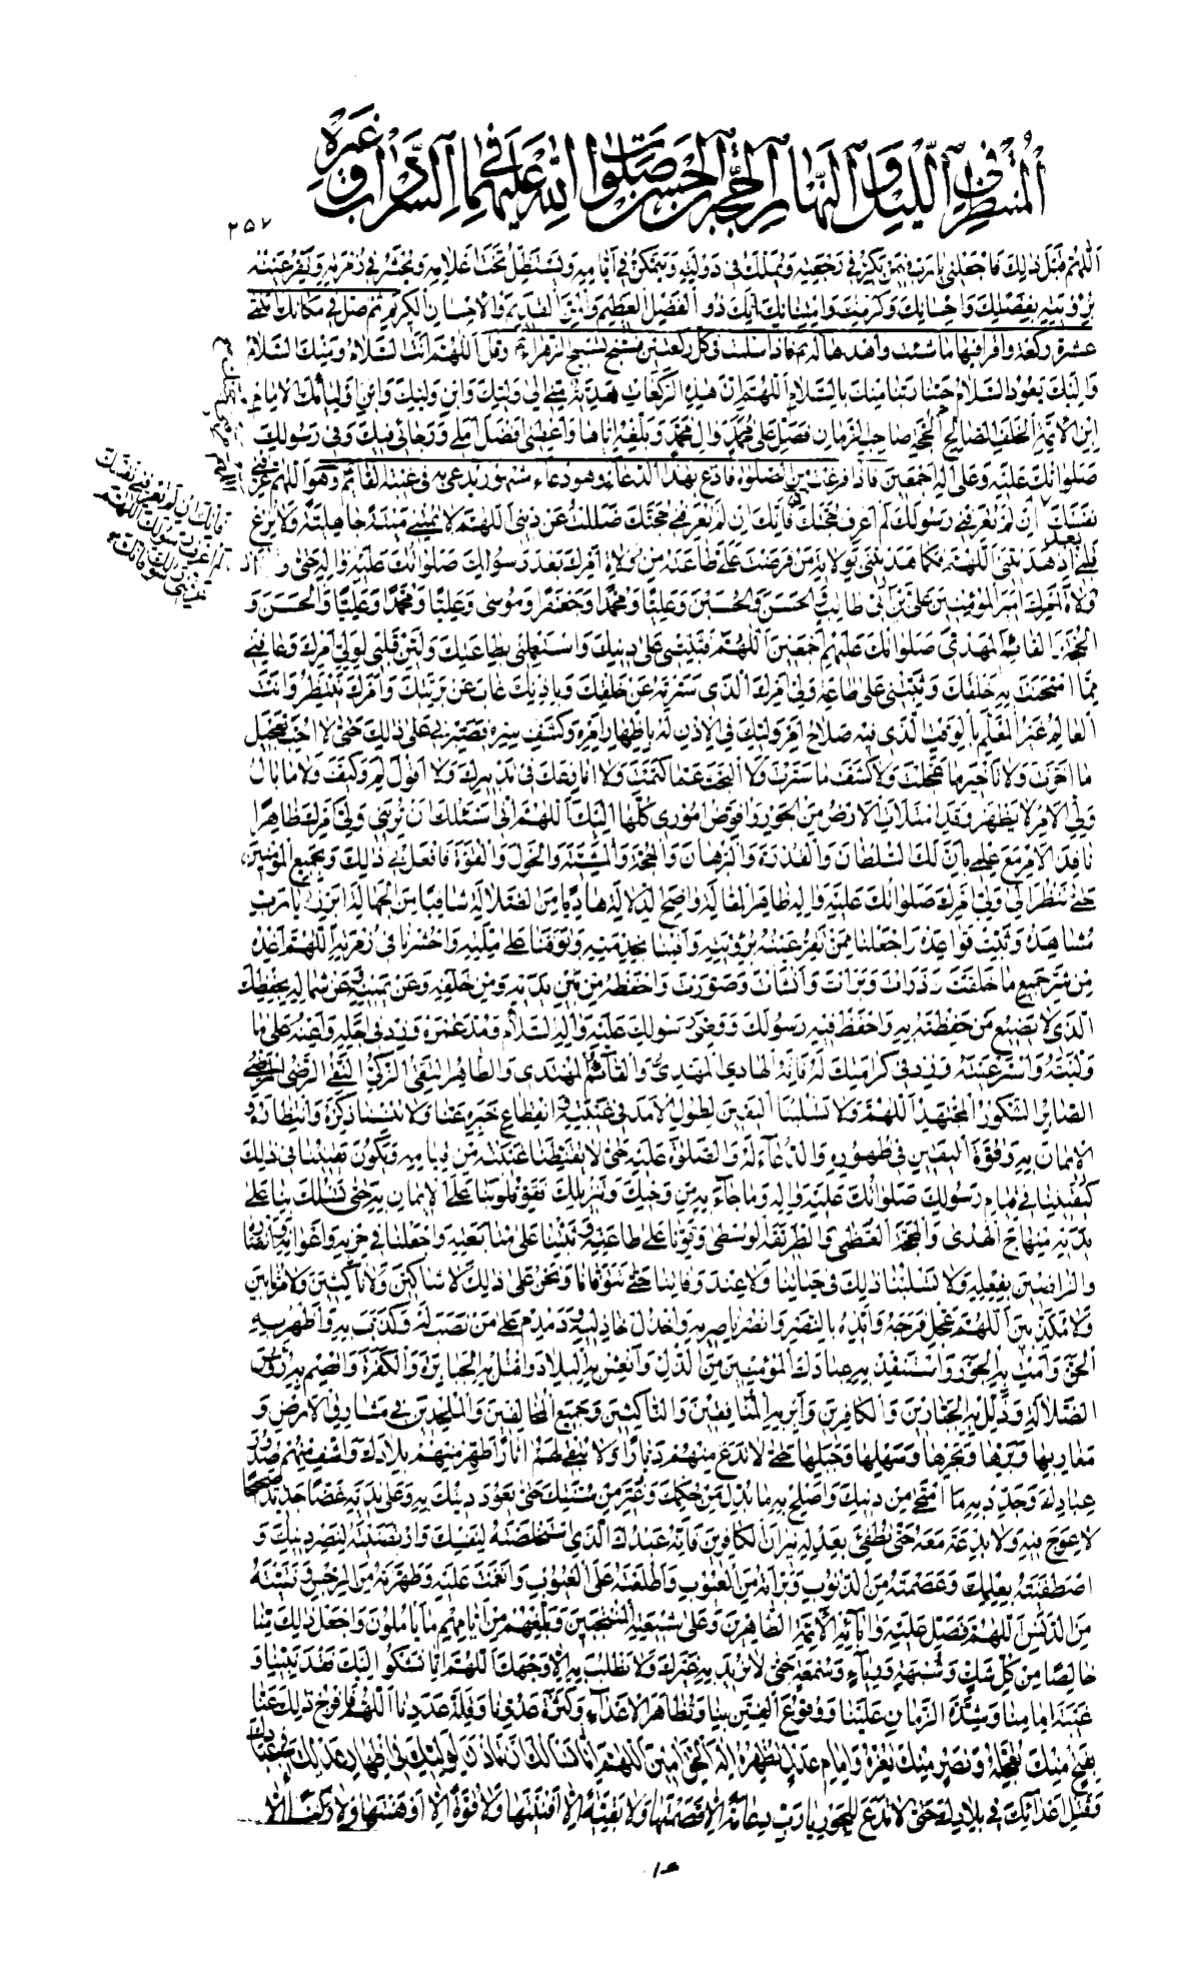 المنتظر في الليل والنهار الحجة بن الحسن صلوات الله عليهما في السرداب وغيره
٢٥٧
اَللّهُمَّ قَبْلَ ذلِكَ فَاجْعَلْني يا رَبِّ فيمَنْ يَكِرُّ في رَجْعَتِهِ وَيُمَلَّكُ في دَوْلَتِهِ وَيَتَمَكَّنُ في اَيّامِهِ وَيَسْتَظِلُّ تَحْتَ اَعْلامِهِ وَيُحْشَرُ في زُمْرَتِهِ وَتَقَرُّ عَيْنُهُ
بِرُؤْيَتِهِ بِفَضْلِكَ وَاِحْسانِكَ وَكَرَمِكَ وَامْتِنانِكَ اِنَّكَ ذُو الْفَضْلِ الْعَظيمِ وَالْمَنِّ الْقَديمِ وَالْاِحْسانِ الْكَريمِ ثم صل في مكانك اثنتي
عشرة ركعة واقرأ فيها ما شئت واهدها له فاذا سلمت في كل ركعتين فسبح تسبيح الزهراء وقل اَللّهُمَّ اَنْتَ السَّلامُ وَمِنْكَ السَّلامُ
وَاِلَيْكَ يَعُودُ السَّلامُ حَيِّنا رَبَّنا مِنْكَ بِالسَّلامِ اَللّهُمَّ اِنَّ هذِهِ الرَّكَعاتِ هَدِيَّةٌ مِنّي اِلى وَلِيِّكَ وَابْنِ وَلِيِّكَ وَابْنِ اَوْلِيائِكَ الْاِمامِ
ابْنِ الْاَئِمَّةِ الْخَلَفِ الصّالِحِ الْحُجَّةِ صاحِبِ الزَّمانِ فَصَلِّ عَلى مُحَمَّدٍ وَآلِ مُحَمَّدٍ وَبَلِّغْهُ اِيّاها وَاَعْطِني اَفْضَلَ اَمَلي وَرَجائي فيكَ وَفي رَسُولِكَ
صَلَواتُكَ عَلَيْهِ وَعَلى آلِهِ اَجْمَعينَ فاذا فرغت من الصلوة فادع بهذا الدعاء وهو دعاء مشهور يدعى به في غيبة القائم وهو اَللّهُمَّ عَرِّفْني
نَفْسَكَ
اِنْ لَمْ تُعَرِّفْني رَسُولَكَ لَمْ اَعْرِفْ حُجَّتَكَ فَاِنَّكَ اِنْ لَمْ تُعَرِّفْني حُجَّتَكَ ضَلَلْتُ عَنْ ديني اَللّهُمَّ لا تُمِتْني ميتَةً جاهِلِيَّةً وَلا تُزِغْ
قَلْبي بعد اِذْ هَدَيْتَني اَللّهُمَّ فَكَما هَدَيْتَني بِوِلايَةِ مَنْ فَرَضْتَ عَلَيَّ طاعَتَهُ مِنْ وُلاةِ اَمْرِكَ بَعْدَ رَسُولِكَ صَلَواتُكَ عَلَيْهِ وَآلِهِ حَتّى
وُلاةَ اَمْرِكَ اَميرَ الْمُؤْمِنينَ عَلِيَّ بْنَ اَبي طالِبٍ وَالْحَسَنَ وَالْحُسَيْنَ وَعَلِيًّا وَمُحَمَّدًا وَجَعْفَرًا وَمُوسى وَعَلِيًّا وَمُحَمَّدًا وَعَلِيًّا وَالْحَسَنَ وَ
الْحُجَّةَ الْقائِمَ الْمَهْدِيَّ صَلَواتُكَ عَلَيْهِمْ اَجْمَعينَ اَللّهُمَّ فَثَبِّتْني عَلى دينِكَ وَاسْتَعْمِلْني بِطاعَتِكَ وَلَيِّنْ قَلْبي لِوَلِيِّ اَمْرِكَ وَعافِني
مِمَّا امْتَحَنْتَ بِهِ خَلْقَكَ وَثَبِّتْني عَلى طاعَةِ وَلِيِّ اَمْرِكَ الَّذي سَتَرْتَهُ عَنْ خَلْقِكَ وَبِاِذْنِكَ غابَ عَنْ بَرِيَّتِكَ وَاَمْرَكَ يَنْتَظِرُ وَاَنْتَ
الْعالِمُ غَيْرُ الْمُعَلَّمِ بِالْوَقْتِ الَّذي فيهِ صَلاحُ اَمْرِ وَلِيِّكَ فِي الْاِذْنِ لَهُ بِاِظْهارِ اَمْرِهِ وَكَشْفِ سِتْرِهِ فَصَبِّرْني عَلى ذلِكَ حَتّى لا اُحِبَّ تَعْجيلَ
ما اَخَّرْتَ وَلا تَأْخيرَ ما عَجَّلْتَ وَلا كَشْفَ ما سَتَرْتَ وَلا الْبَحْثَ عَمّا كَتَمْتَ وَلا اُنازِعَكَ في تَدْبيرِكَ وَلا اَقُولَ لِمَ وَكَيْفَ وَلا ما بالُ
وَلِيِّ الْاَمْرِ لا يَظْهَرُ وَقَدِ امْتَلَأَتِ الْاَرْضُ مِنَ الْجَوْرِ وَاُفَوِّضُ اُمُوري كُلَّها اِلَيْكَ اَللّهُمَّ اِنّي اَسْئَلُكَ اَنْ تُرِيَني وَلِيَّ اَمْرِكَ ظاهِرًا
نافِذَ الْاَمْرِ مَعَ عِلْمي بِاَنَّ لَكَ السُّلْطانَ وَالْقُدْرَةَ وَالْبُرْهانَ وَالْحُجَّةَ وَالْمَشِيَّةَ وَالْحَوْلَ وَالْقُوَّةَ فَافْعَلْ بي ذلِكَ وَبِجَميعِ الْمُؤْمِنينَ
حَتّى نَنْظُرَ اِلى وَلِيِّ اَمْرِكَ صَلَواتُكَ عَلَيْهِ وَآلِهِ ظاهِرَ الْمَقالَةِ واضِحَ الدَّلالَةِ هادِيًا مِنَ الضَّلالَةِ شافِيًا مِنَ الْجَهالَةِ اَبْرِزْ يا رَبِّ
مُشاهَدَتَهُ وَثَبِّتْ قَواعِدَهُ وَاجْعَلْنا مِمَّنْ تَقَرُّ عَيْنُهُ بِرُؤْيَتِهِ وَاَقِمْنا بِخِدْمَتِهِ وَتَوَفَّنا عَلى مِلَّتِهِ وَاحْشُرْنا في زُمْرَتِهِ اَللّهُمَّ اَعِذْهُ
مِنْ شَرِّ جَميعِ ما خَلَقْتَ وَذَرَأْتَ وَبَرَأْتَ وَاَنْشَأْتَ وَصَوَّرْتَ وَاحْفَظْهُ مِنْ بَيْنِ يَدَيْهِ وَمِنْ خَلْفِهِ وَعَنْ يَمينِهِ وَعَنْ شِمالِهِ بِحِفْظِكَ
الَّذي لا يَضيعُ مَنْ حَفِظْتَهُ بِهِ وَاحْفَظْ فيهِ رَسُولَكَ وَوَصِيَّ رَسُولِكَ عَلَيْهِ وَآلِهِ السَّلامُ وَمُدَّ في عُمْرِهِ وَزِدْ في اَجَلِهِ وَاَعِنْهُ عَلى ما
وَلَّيْتَهُ وَاسْتَرْعَيْتَهُ وَزِدْ في كَرامَتِكَ لَهُ فَاِنَّهُ الْهادِي الْمَهْدِيُّ وَالْقائِمُ الْمُهْتَدي وَالطّاهِرُ التَّقِيُّ الزَّكِيُّ النَّقِيُّ الرَّضِيُّ الْمَرْضِيُّ
الصّابِرُ الشَّكُورُ الْمُجْتَهِدُ اَللّهُمَّ وَلا تَسْلُبْنَا الْيَقينَ لِطُولِ الْاَمَدِ في غَيْبَتِهِ وَانْقِطاعِ خَبَرِهِ عَنّا وَلا تُنْسِنا ذِكْرَهُ وَانْتِظارَهُ وَ
الْايمانَ بِهِ وَقُوَّةَ الْيَقينِ في ظُهُورِهِ وَالدُّعاءَ لَهُ وَالصَّلوةَ عَلَيْهِ حَتّى لا يُقَنِّطَنا غَيْبَتُهُ مِنْ قِيامِهِ وَيَكُونَ يَقينُنا في ذلِكَ
كَيَقينِنا في قِيامِ رَسُولِكَ صَلَواتُكَ عَلَيْهِ وَآلِهِ وَما جاءَ بِهِ مِنْ وَحْيِكَ وَتَنْزيلِكَ فَقَوِّ قُلُوبَنا عَلَى الْايمانِ بِهِ حَتّى تَسْلُكَ بِنا عَلى
يَدَيْهِ مِنْهاجَ الْهُدى وَالْمَحَجَّةَ الْعُظْمى وَالطَّريقَةَ الْوُسْطى وَقَوِّنا عَلى طاعَتِهِ وَثَبِّتْنا عَلى مُتابَعَتِهِ وَاجْعَلْنا في حِزْبِهِ وَاَعْوانِهِ وَاَنْصارِهِ
وَالرّاضينَ بِفِعْلِهِ وَلا تَسْلُبْنا ذلِكَ في حَياتِنا وَلا عِنْدَ وَفاتِنا حَتّى تَتَوَفّانا وَنَحْنُ عَلى ذلِكَ لا شاكّينَ وَلا ناكِثينَ وَلا مُرْتابينَ
وَلا مُكَذِّبينَ اَللّهُمَّ عَجِّلْ فَرَجَهُ وَاَيِّدْهُ بِالنَّصْرِ وَانْصُرْ ناصِريهِ وَاخْذُلْ خاذِليهِ وَدَمْدِمْ عَلى مَنْ نَصَبَ لَهُ وَكَذَّبَ بِهِ وَاَظْهِرْ بِهِ
الْحَقَّ وَاَمِتْ بِهِ الْجَوْرَ وَاسْتَنْقِذْ بِهِ عِبادَكَ الْمُؤْمِنينَ مِنَ الذُّلِّ وَانْعَشْ بِهِ الْبِلادَ وَاقْتُلْ بِهِ الْجَبابِرَةَ وَالْكَفَرَةَ وَاقْصِمْ بِهِ رُؤُسَ
الضَّلالَةِ وَذَلِّلْ بِهِ الْجَبّارينَ وَالْكافِرينَ وَاَبِرْ بِهِ الْمُنافِقينَ وَالنّاكِثينَ وَجَميعَ الْمُخالِفينَ وَالْمُلْحِدينَ في مَشارِقِ الْاَرْضِ وَ
مَغارِبِها وَبَرِّها وَبَحْرِها وَسَهْلِها وَجَبَلِها حَتّى لا تَدَعَ مِنْهُمْ دَيّارًا وَلا تُبْقِيَ لَهُمْ آثارًا طَهِّرْ مِنْهُمْ بِلادَكَ وَاشْفِ مِنْهُمْ صُدُورَ
عِبادِكَ وَجَدِّدْ بِهِ مَا امْتَحى مِنْ دينِكَ وَاَصْلِحْ بِهِ ما بُدِّلَ مِنْ حُكْمِكَ وَغُيِّرَ مِنْ سُنَّتِكَ حَتّى يَعُودَ دينُكَ بِهِ وَعَلى يَدَيْهِ غَضًّا جَديدًا صَحيحًا
لا عِوَجَ فيهِ وَلا بِدْعَةَ مَعَهُ حَتّى تُطْفِئَ بِعَدْلِهِ نيرانَ الْكافِرينَ فَاِنَّهُ عَبْدُكَ الَّذي اسْتَخْلَصْتَهُ لِنَفْسِكَ وَارْتَضَيْتَهُ لِنَصْرِ دينِكَ وَ
اصْطَفَيْتَهُ بِعِلْمِكَ وَعَصَمْتَهُ مِنَ الذُّنُوبِ وَبَرَّأْتَهُ مِنَ الْعُيُوبِ وَاَطْلَعْتَهُ عَلَى الْغُيُوبِ وَاَنْعَمْتَ عَلَيْهِ وَطَهَّرْتَهُ مِنَ الرِّجْسِ وَنَقَّيْتَهُ
مِنَ الدَّنَسِ اَللّهُمَّ فَصَلِّ عَلَيْهِ وَعَلى آبائِهِ الْاَئِمَّةِ الطّاهِرينَ وَعَلى شيعَتِهِ الْمُنْتَجَبينَ وَبَلِّغْهُمْ مِنْ اَيّامِهِمْ ما يَأْمُلُونَ وَاجْعَلْ ذلِكَ مِنّا
خالِصًا مِنْ كُلِّ شَكٍّ وَشُبْهَةٍ وَرِياءٍ وَسُمْعَةٍ حَتّى لا نُريدَ بِهِ غَيْرَكَ وَلا نَطْلُبَ بِهِ اِلّا وَجْهَكَ اَللّهُمَّ اِنّا نَشْكُو اِلَيْكَ فَقْدَ نَبِيِّنا وَ
غَيْبَةَ اِمامِنا وَشِدَّةَ الزَّمانِ عَلَيْنا وَوُقُوعَ الْفِتَنِ بِنا وَتَظاهُرَ الْاَعْداءِ وَكَثْرَةَ عَدُوِّنا وَقِلَّةَ عَدَدِنا اَللّهُمَّ فَافْرُجْ ذلِكَ عَنّا
بِفَتْحٍ مِنْكَ تُعَجِّلُهُ وَنَصْرٍ مِنْكَ تُعِزُّهُ وَاِمامِ عَدْلٍ تُظْهِرُهُ اِلهَ الْحَقِّ آمينَ اَللّهُمَّ اِنّا نَسْأَلُكَ اَنْ تَأْذَنَ لِوَلِيِّكَ في اِظْهارِ عَدْلِكَ في عِبادِكَ
وَقَتْلِ اَعْدائِكَ في بِلادِكَ حَتّى لا تَدَعَ لِلْجَوْرِ يا رَبِّ دِعامَةً اِلّا قَصَمْتَها وَلا بَقِيَّةً اِلّا اَفْنَيْتَها وَلا قُوَّةً اِلّا اَوْهَنْتَها وَلا رُكْنًا اِلّا
فَاِنَّكَ اِنْ لَمْ تُعَرِّفْني نَفْسَكَ
لَمْ اَعْرِفْ رَسُولَكَ اَللّهُمَّ